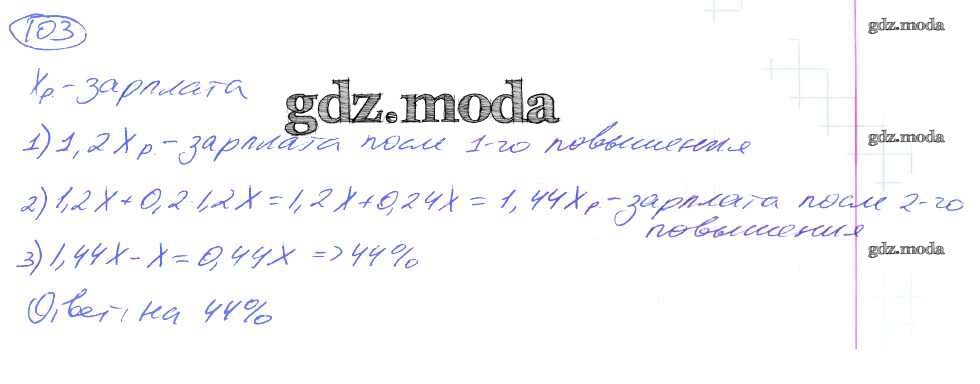 103
gdz.moda
х р. - зарплата
gdz.moda
1) 1,2х р. - зарплата после 1-го повышения
gdz.moda
2) 1,2х + 0,2·1,2х = 1,2х + 0,24х = 1,44х р. - зарплата после 2-го
повышения
3) 1,44х - х = 0,44х => 44%
gdz.moda
Ответ: на 44%